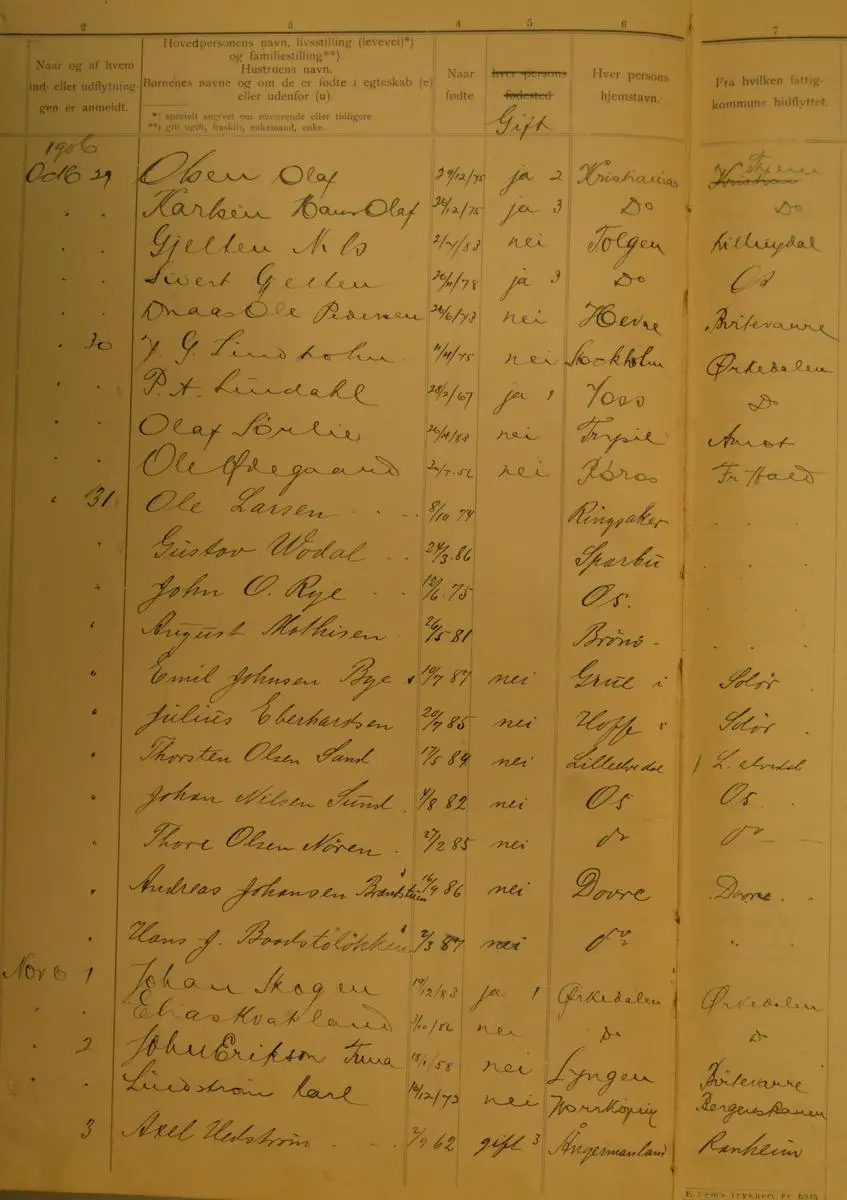 2 3 4 5 6 7
Naar og af hvem ind- eller udflytningen er anmeldt.
Hovedpersonens navn, livsstilling (levevei)*)
og familiestilling**)
Hustruens navn.
Børnenes navne og om de er fødte i egteskab (e)
eller udenfor (u).
*) specielt angivet om nuværende eller tidligere
**) gift ugift, fraskilt, enkemand, enke.
Naar fødte
hver persons fødested
Gift
Hver persons hjemstavn.
Fra hvilken fattigkommune hidflyttet.
1906
Octb 29 Olsen Olaf 29/12/75 ja 2 Kristiania
" " Karlsen Hans Olaf 26/12/75 ja 3 Do Do
" " Gjelten Nils 2/4/83 nei Tolgen Lilleelvdal
" " Sivert Gjelten 20/11/78 ja 3 Do Os
" " Ole Pedersen 26/6/73 nei Birtevarre
" 30 J. G. Lindholm 11/11/75 nei Stockholm Ørkedalen
" " P. A. Lindahl 28/2/67 ja 1 Voss Do
" " Olaf Sørlie 20/4/83 nei Trysil Amot
" " Ole Ødegaard 20/7-56 nei Røros Fr Hald
" 31 Ole Larsen 8/10 74 Ringsaker
" Gustav Wodal 24/3.86 Sparbu
" John O. Rye 12/6.75 Os.
" August Mathisen 26/5 81 Brönö
" Emil Johnsen Bye 10/7 87 nei Grue i Solör
" Julius Eberhardsen 20/7 85 nei Hoff i Solör
" Thorsten Olsen Sand 17/5 89 nei Lilleelvedal L. elvedal
" Johan Nilsen Sund 4/8 82 nei Os Os.
" Thore Olsen Nören 27/2 85 nei do do
" Andreas Johansen 16/9 86 nei Dovre Dovre
" Hans J. Baadstölökken 2/3 87 nei do "
Novb 1 Johan Skogen 19/12/83 ja 1 Ørkedalen Ørkedalen
" " Elias Kvatland 3/10/56 nei Do Do
" 2 John Erikson 18/1/58 nei Lyngen Birtevarre
" " Lindström Karl 16/12/73 nei Norrköping
3 Axel Hedström 2/9 62 gift 3 Ångermanland Ranheim